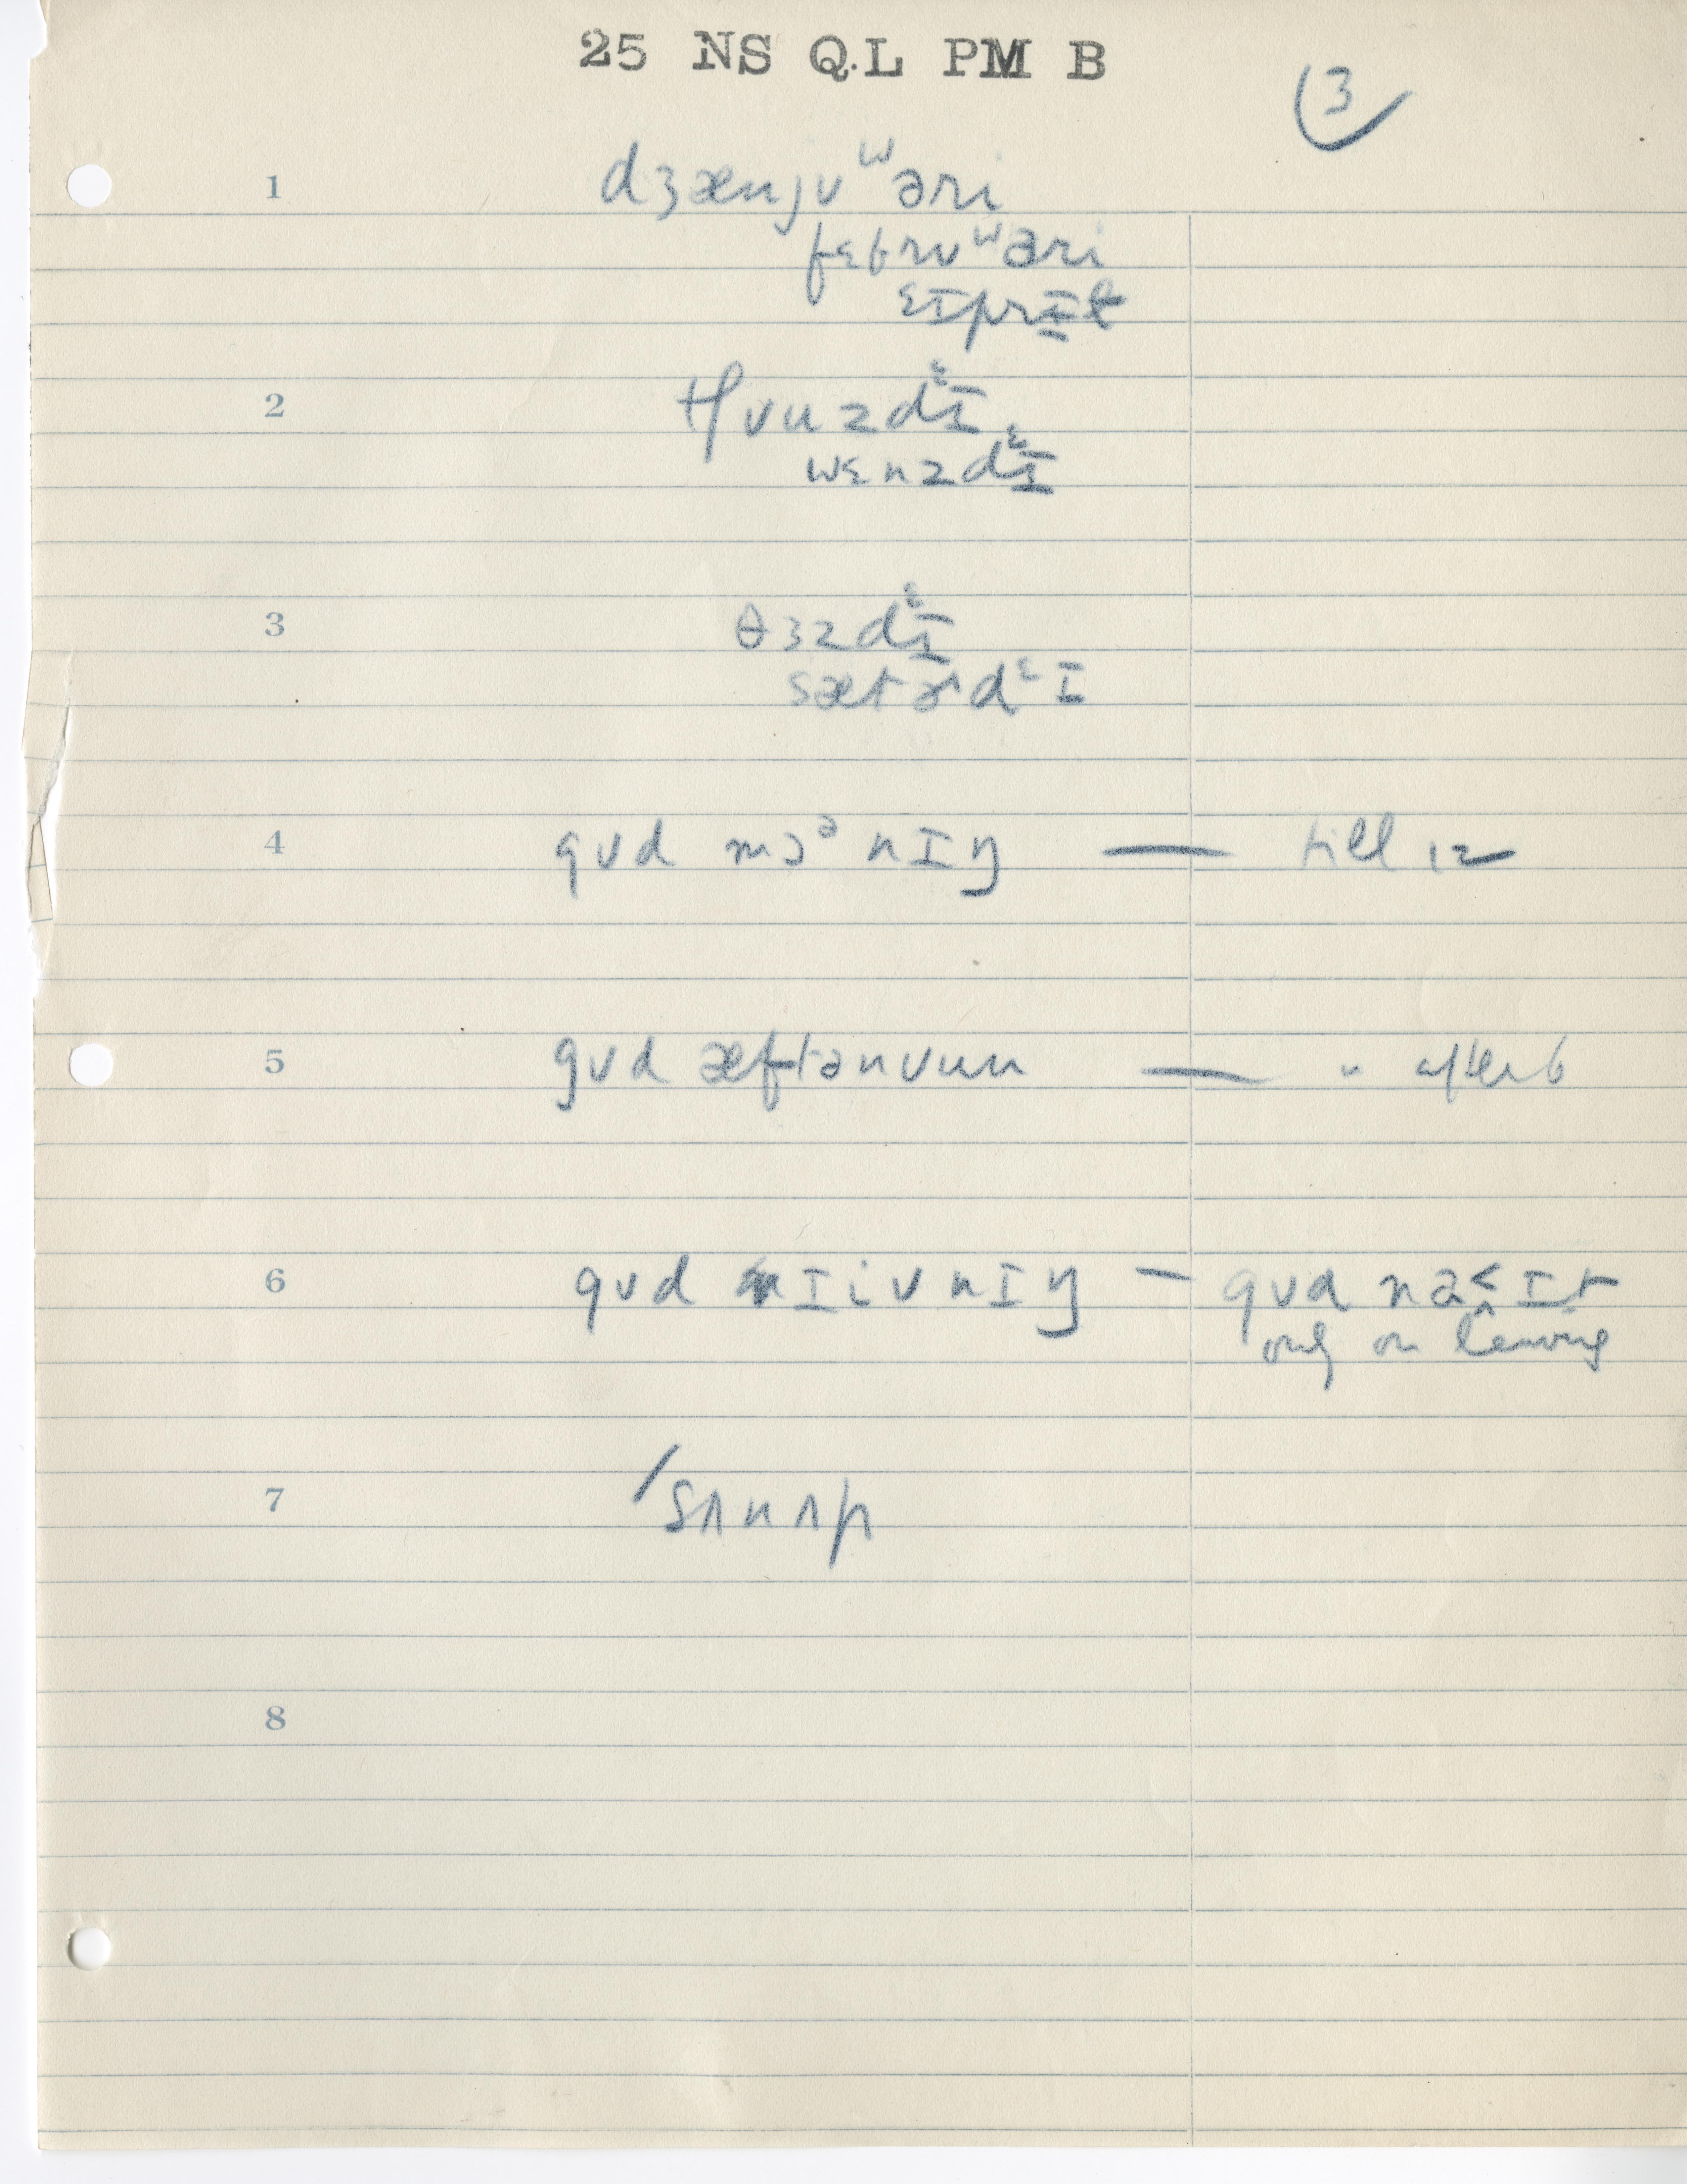 25 NS Q.L PM B
3
1 dʒænjuʷəri
fɛbruʷəri
ɛɪprɪɫ
2 tʃuuzdᵋɪ
wɛnzdᵋɪ
3 θɜzdᵋɪ
sætɚdᵋɪ
4 gʊd mɔᵊnɪŋ — till 12
5 gʊd æftənuun — " after 6
6 gʊd ɪivnɪŋ — gʊd naɪt
only on leaving
7 ˈsʌnʌp
8